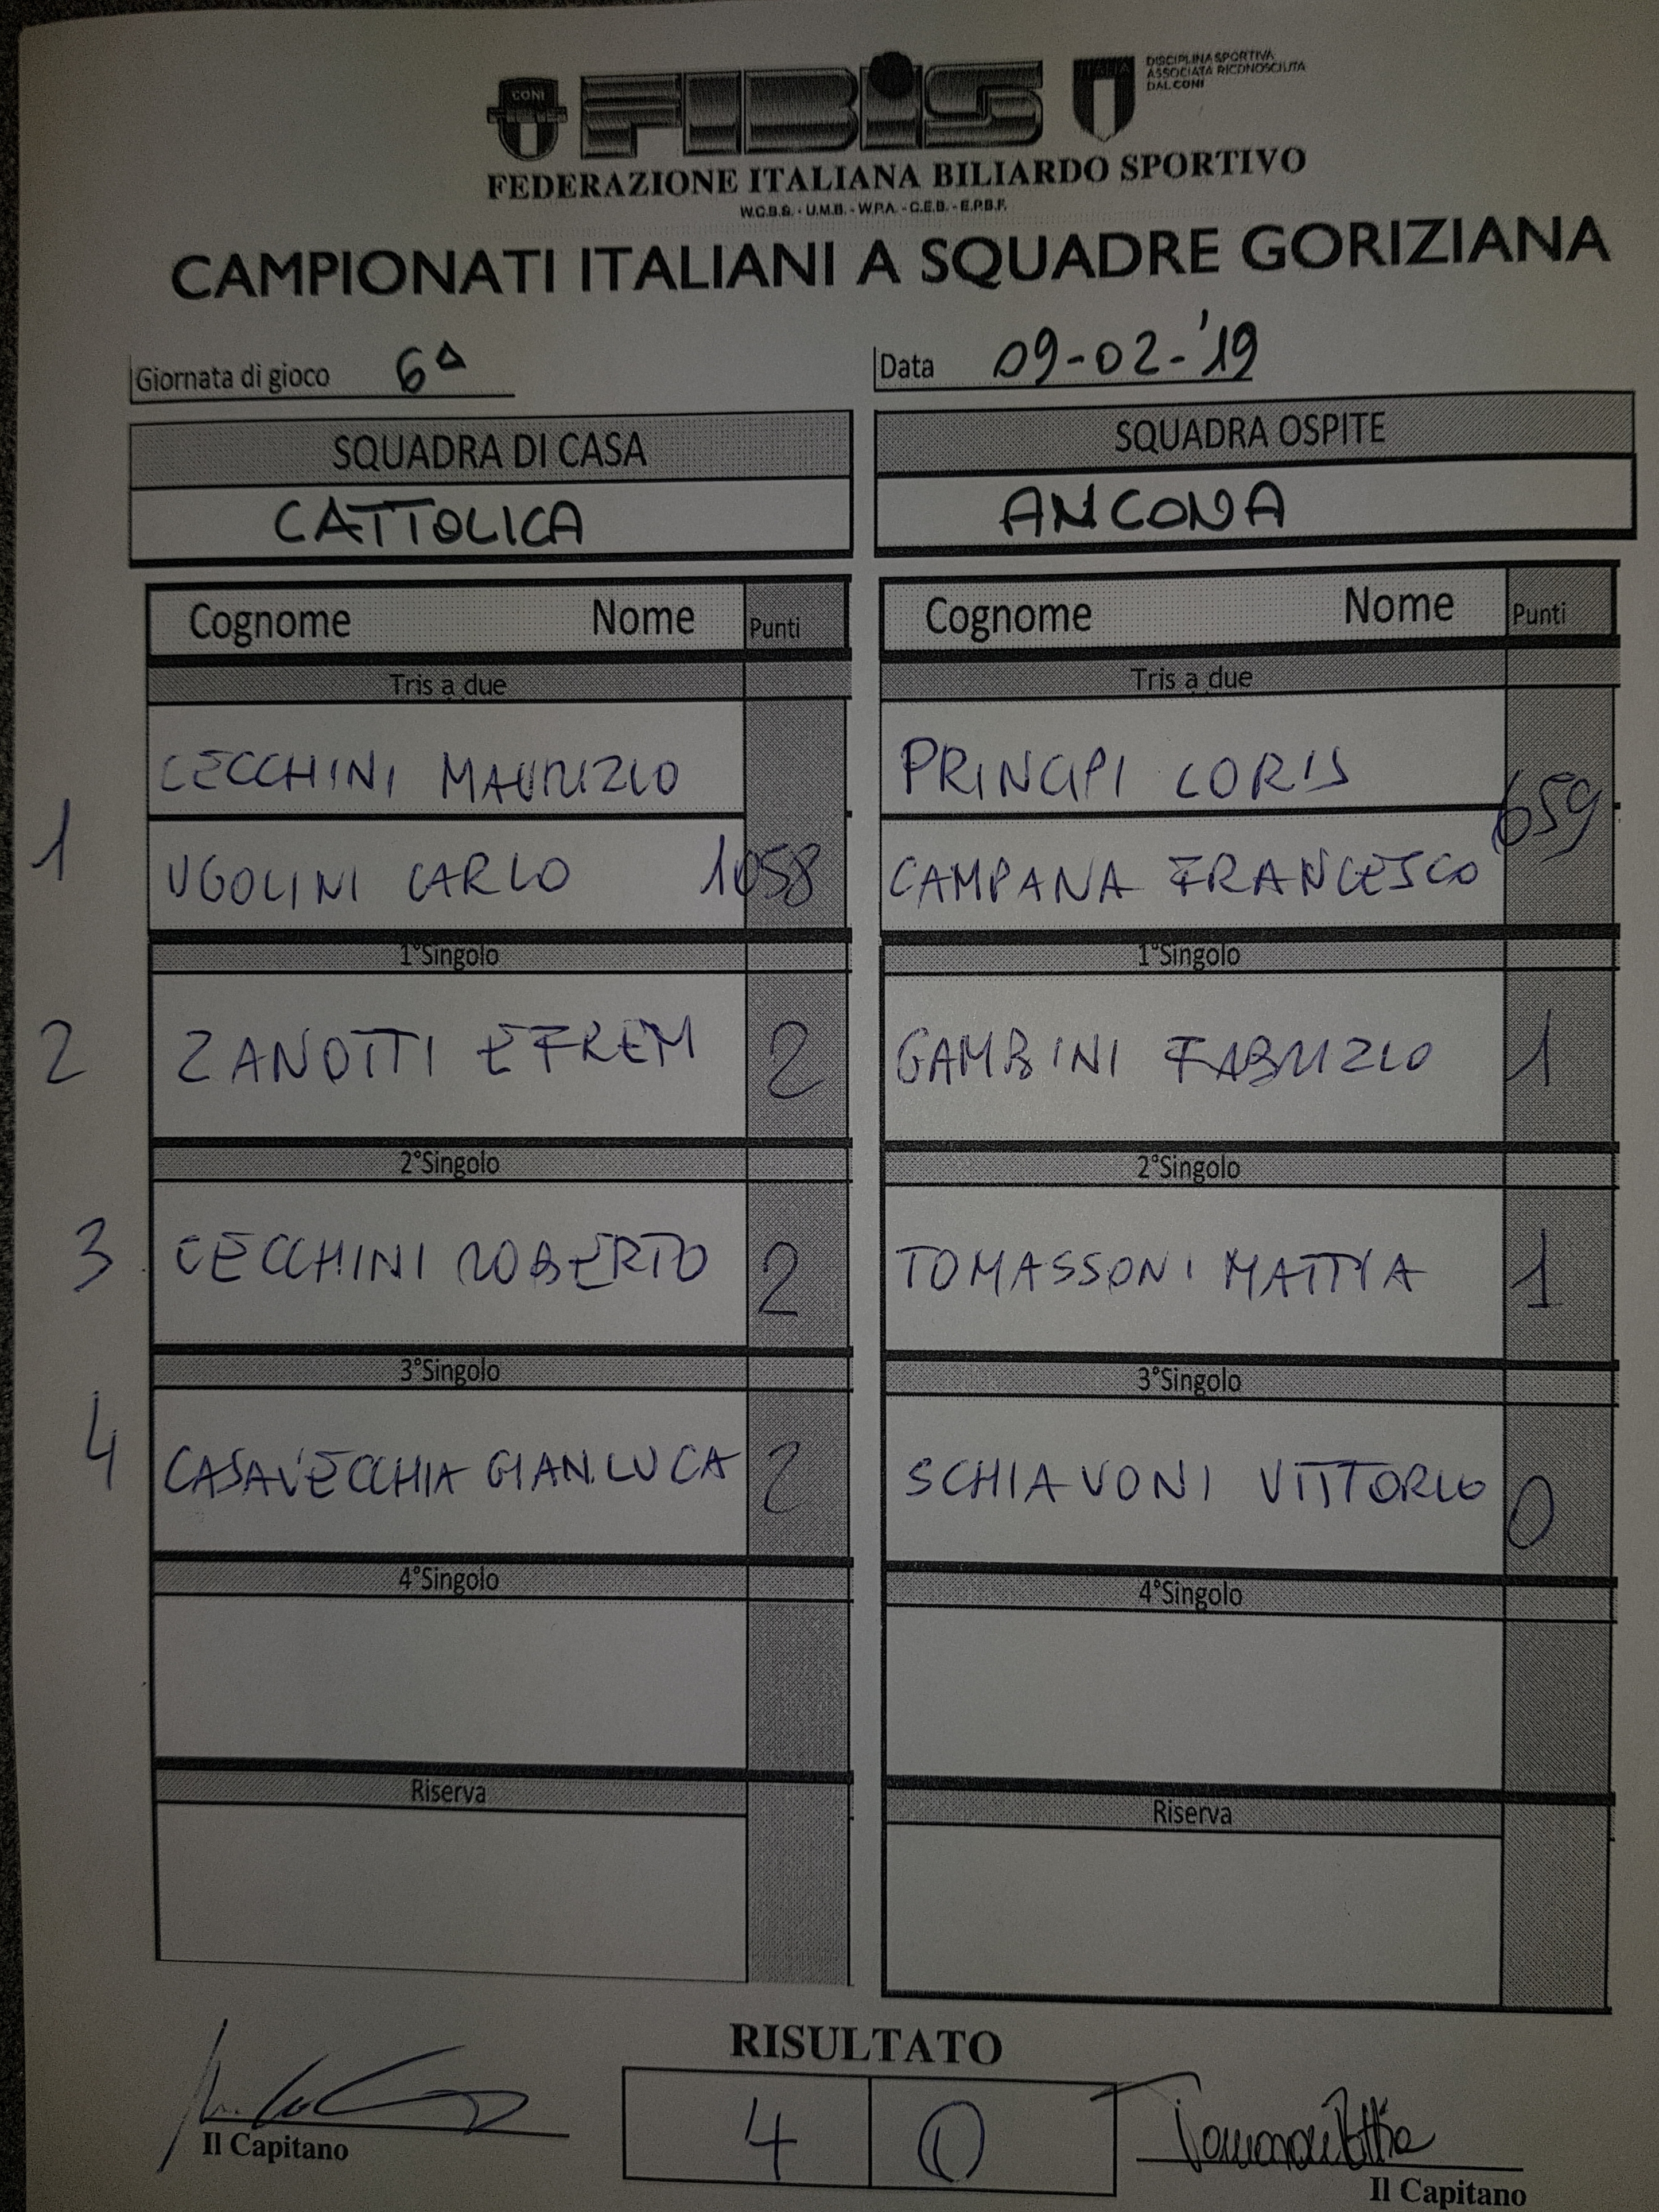 CONI
FIBiS
ITALIA
DISCIPLINA SPORTIVA
ASSOCIATA RICONOSCIUTA
DAL CONI
FEDERAZIONE ITALIANA BILIARDO SPORTIVO
W.C.B.S. - U.M.B. - W.P.A. - C.E.B. - E.P.B.F.
CAMPIONATI ITALIANI A SQUADRE GORIZIANA
Giornata di gioco 6ª Data 09-02-'19
SQUADRA DI CASA SQUADRA OSPITE
CATTOLICA ANCONA
Cognome Nome Punti Cognome Nome Punti
Tris a due Tris a due
CECCHINI MAURIZIO PRINCIPI LORIS
1 UGOLINI CARLO 1058 CAMPANA FRANCESCO 659
1°Singolo 1°Singolo
2 ZANOTTI EFREM 2 GAMBINI FABRIZIO 1
2°Singolo 2°Singolo
3 CECCHINI ROBERTO 2 TOMASSONI MATTIA 1
3°Singolo 3°Singolo
4 CASAVECCHIA GIANLUCA 2 SCHIAVONI VITTORIO 0
4°Singolo 4°Singolo
Riserva Riserva
RISULTATO
4
Il Capitano Il Capitano